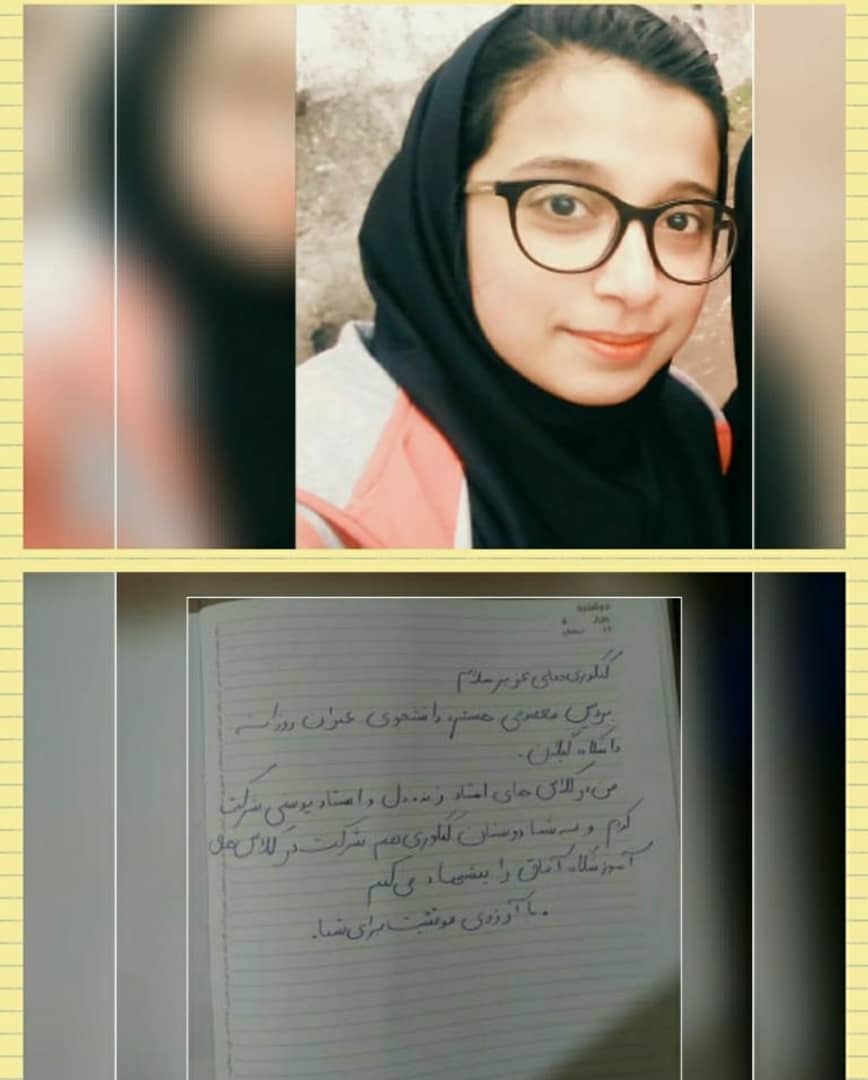 کنکوری‌های عزیز سلام
معصومی هستم دانشجوی عمران روزانه
دانشگاه گیلان.
من در کلاس های استاد زنده‌دل و استاد یوسفی شرکت
کردم و به شما دوستان کنکوری هم شرکت در کلاس های
آموزشگاه آفاق را پیشنهاد می‌کنم
با آرزوی موفقیت برای شما.